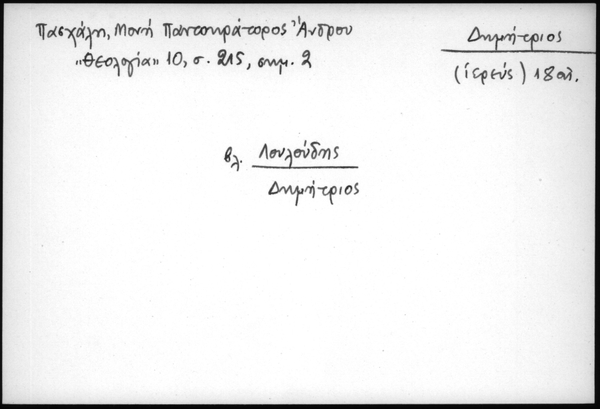 Πασχάλη, Μονή Παντοκράτορος Ἄνδρου
"Θεολογία" 10, σ. 215, σημ. 2
Δημήτριος
(ἱερεύς) 18 αἰ.
βλ. Λουλούδης
Δημήτριος